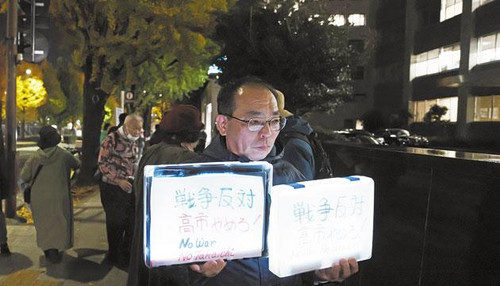 戦争反対
高市やめろ!
No War
No
戦争反対
高市